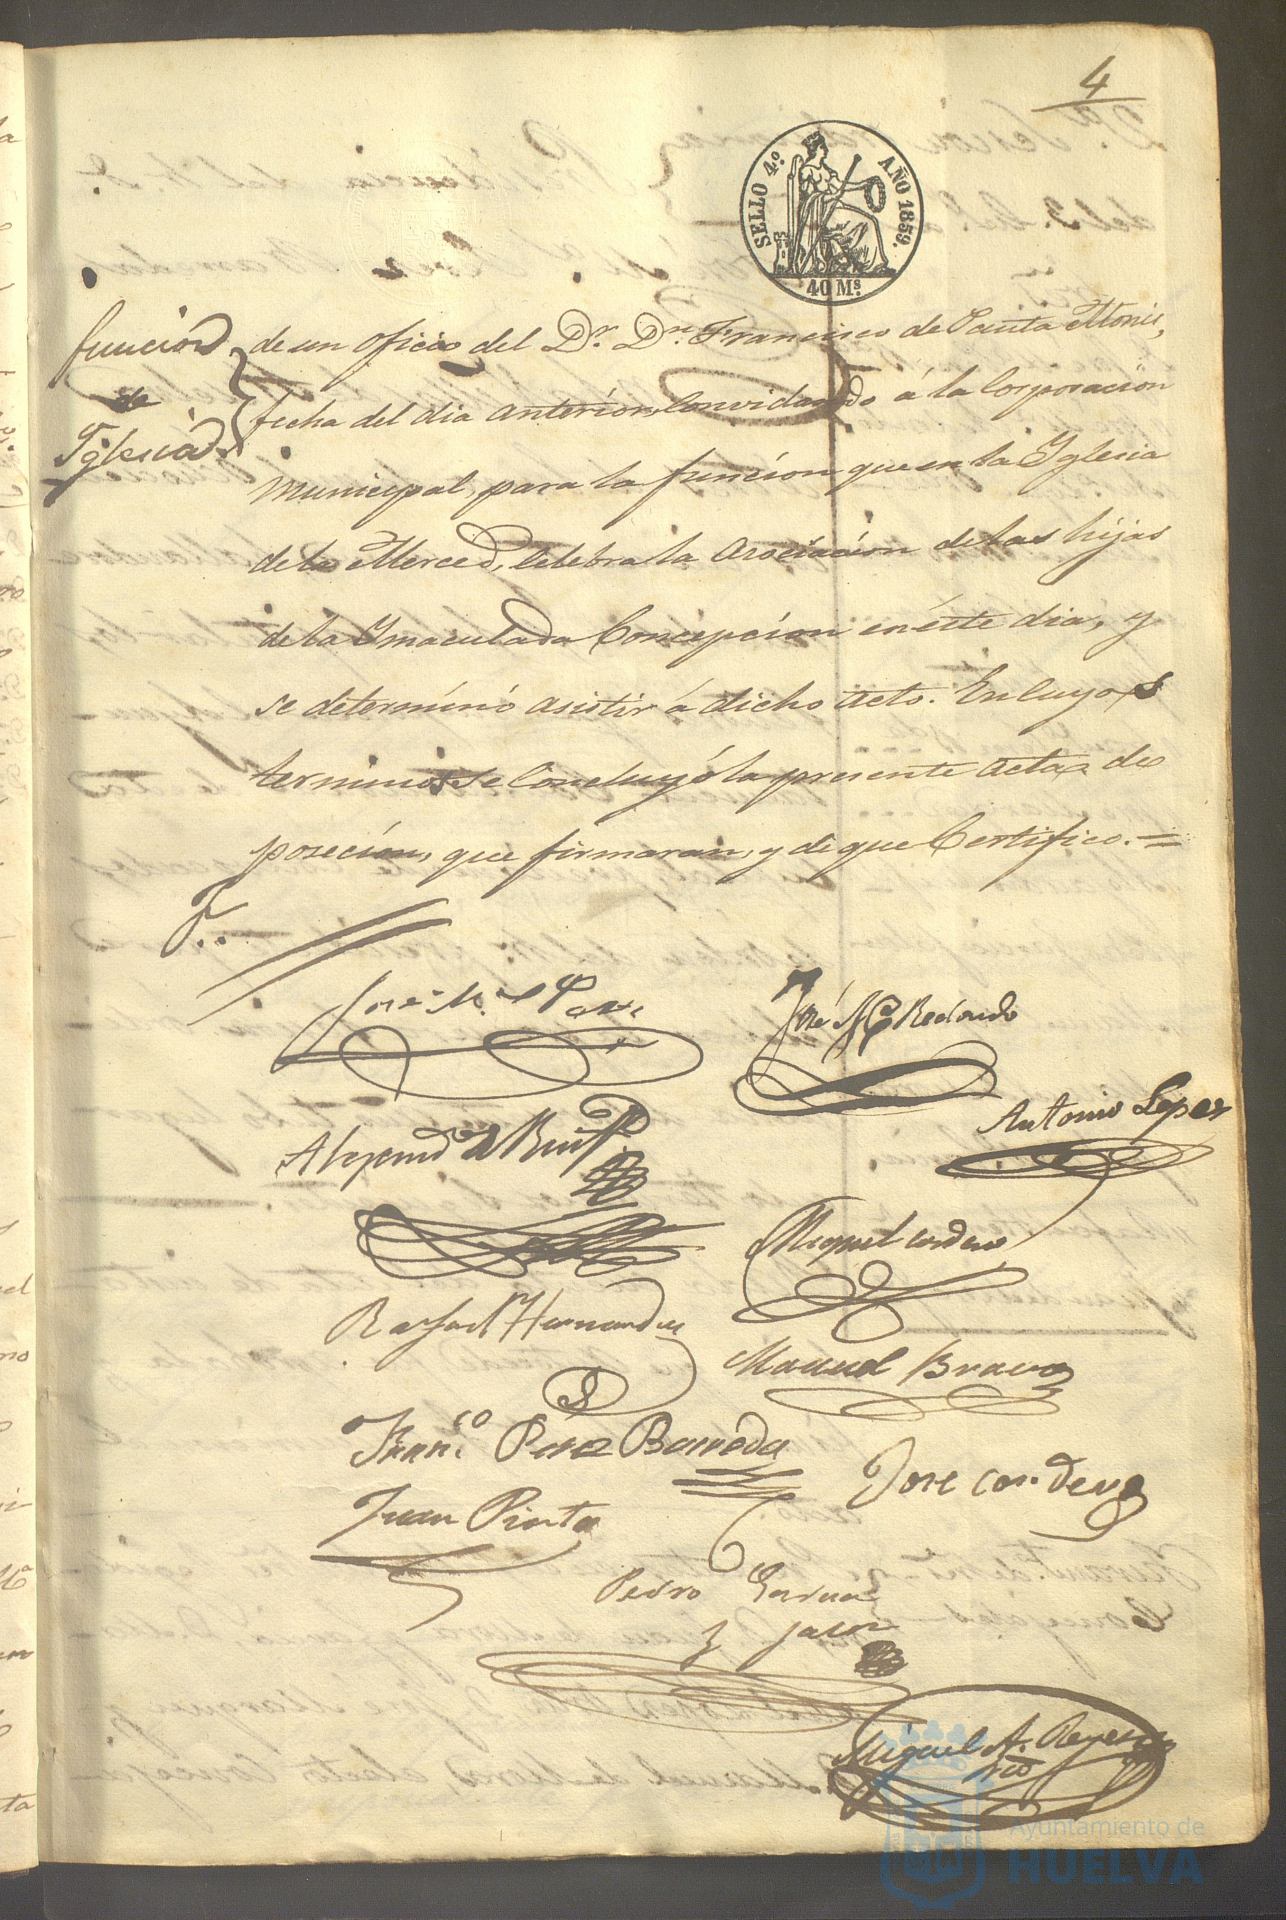 4
SELLO 4.º AÑO 1859.
40 Ms.
funcion
de
Yglesia
de un oficio del Dr. Dn. Francisco de Santa
fecha del dia anterior, Convidando á la Corporacion
Municipal, para la funcion que en la Yglesia
de la Merced, Celebra la Asociacion de las hijas
de la Ymaculada Concepcion en éste dia, y
se determinó asistir á dicho Acto. En Cuyos
terminos se Concluyó la presente Acta de
posecion, que firmaran, y de que Certifico.=
José Redondo
Antonio Lopez
Miguel Cordero
Rafael Hernandez
Manuel Bravo
Franco. Perez Barreda
Jose Cordero
Juan Pinto
Pedro Garcia
y
Miguel A. Reyes
Srio
Ayuntamiento de
HUELVA